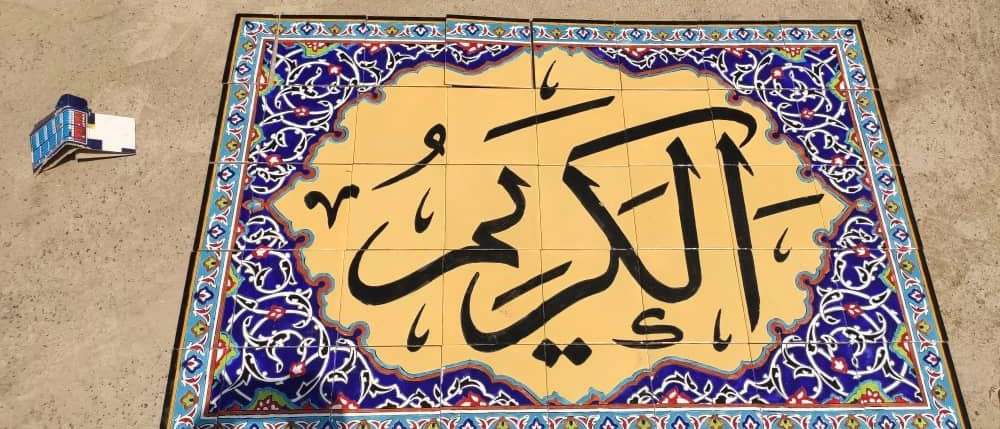 الْكَرِيمُ